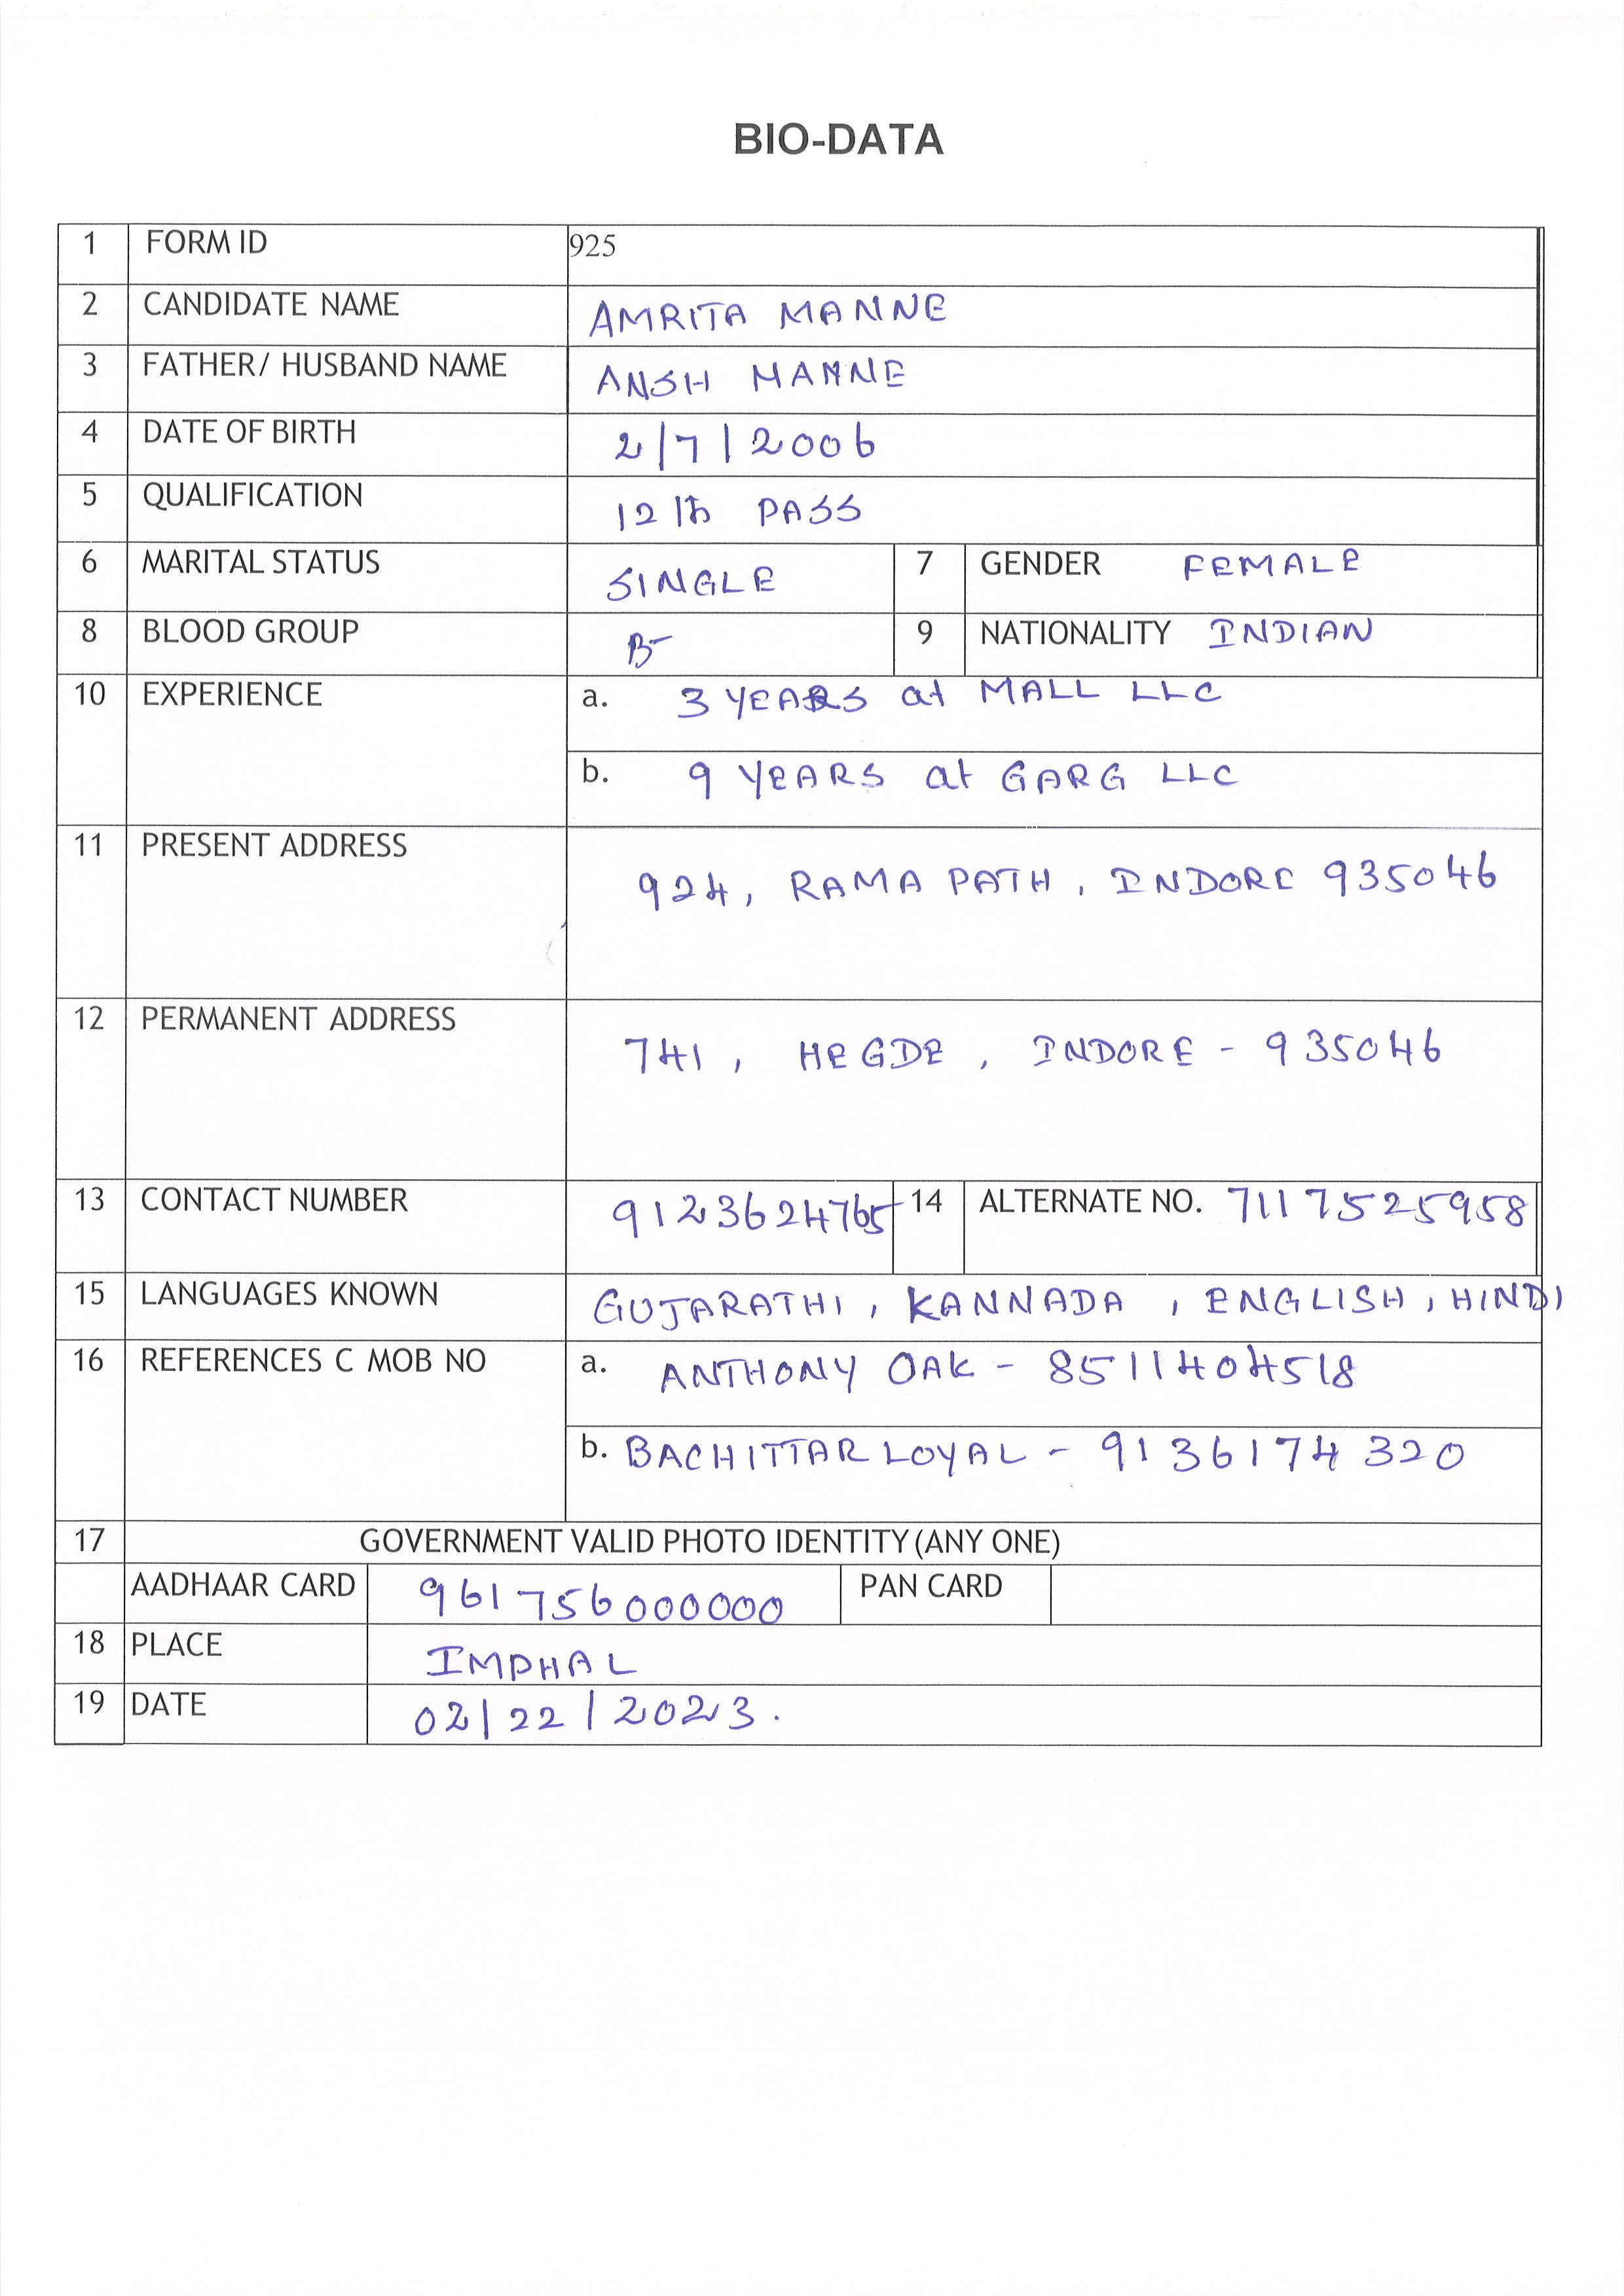 BIO-DATA
1 FORM ID 925
2 CANDIDATE NAME AMRITA MANNE
3 FATHER/ HUSBAND NAME ANSH MANNE
4 DATE OF BIRTH 2/7/2006
5 QUALIFICATION 12th PASS
6 MARITAL STATUS SINGLE 7 GENDER FEMALE
8 BLOOD GROUP B- 9 NATIONALITY INDIAN
10 EXPERIENCE a. 3 YEARS at MALL LLC
b. 9 YEARS at GARG LLC
11 PRESENT ADDRESS
924, RAMA PATH, INDORE 935046
12 PERMANENT ADDRESS
741, HEGDE, INDORE - 935046
13 CONTACT NUMBER 9123624765 14 ALTERNATE NO. 7117525958
15 LANGUAGES KNOWN GUJARATHI, KANNADA, ENGLISH, HINDI
16 REFERENCES C MOB NO a. ANTHONY OAK - 8511404518
b. BACHITTAR LOYAL - 9136174320
17 GOVERNMENT VALID PHOTO IDENTITY (ANY ONE)
AADHAAR CARD 961756000000 PAN CARD
18 PLACE IMPHAL
19 DATE 02/22/2023.